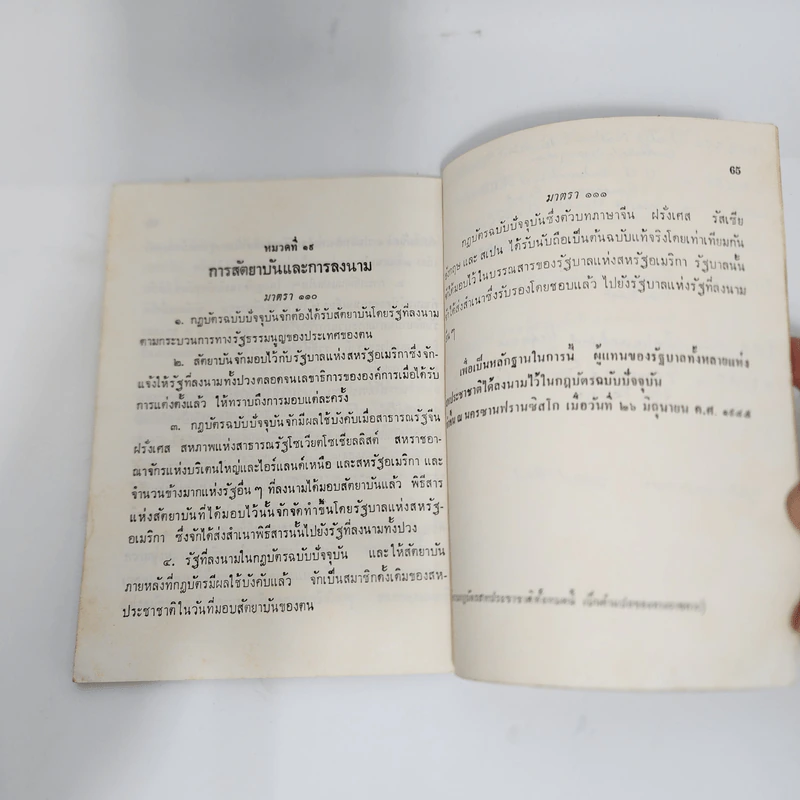 หมวดที่ ๑๙
การสัตยาบันและการลงนาม
มาตรา ๑๑๐
๑. กฎบัตรฉบับปัจจุบันจักต้องได้รับสัตยาบันโดยรัฐที่ลงนาม
ตามกระบวนการทางรัฐธรรมนูญของประเทศของตน
๒. สัตยาบันจักมอบไว้กับรัฐบาลแห่งสหรัฐอเมริกาซึ่งจัก-
แจ้งให้รัฐที่ลงนามทั้งปวงตลอดจนเลขาธิการขององค์การเมื่อได้รับ
การแต่งตั้งแล้ว ให้ทราบถึงการมอบแต่ละครั้ง
๓. กฎบัตรฉบับปัจจุบันจักมีผลใช้บังคับเมื่อสาธารณรัฐจีน
ฝรั่งเศส สหภาพแห่งสาธารณรัฐโซเวียตโซเชียลลิสต์ สหราชอา-
ณาจักรแห่งบริเตนใหญ่และไอร์แลนด์เหนือ และสหรัฐอเมริกา และ
จำนวนข้างมากแห่งรัฐอื่น ๆ ที่ลงนามได้มอบสัตยาบันแล้ว พิธีสาร
แห่งสัตยาบันที่ได้มอบไว้นั้นจักจัดทำขึ้นโดยรัฐบาลแห่งสหรัฐ-
อเมริกา ซึ่งจักได้ส่งสำเนาพิธีสารนั้นไปยังรัฐที่ลงนามทั้งปวง
๔. รัฐที่ลงนามในกฎบัตรฉบับปัจจุบัน และให้สัตยาบัน
ภายหลังที่กฎบัตรมีผลใช้บังคับแล้ว จักเป็นสมาชิกดั้งเดิมของสห-
ประชาชาติในวันที่มอบสัตยาบันของตน
65
มาตรา ๑๑๑
กฎบัตรฉบับปัจจุบันซึ่งตัวบทภาษาจีน ฝรั่งเศส รัสเซีย
และ สเปน ได้รับนับถือเป็นต้นฉบับแท้จริงโดยเท่าเทียมกัน
มอบไว้ในบรรณสารของรัฐบาลแห่งสหรัฐอเมริกา รัฐบาลนั้น
ได้ส่งสำเนาซึ่งรับรองโดยชอบแล้ว ไปยังรัฐบาลแห่งรัฐที่ลงนาม
ๆ
เพื่อเป็นหลักฐานในการนี้ ผู้แทนของรัฐบาลทั้งหลายแห่ง
ประชาชาติได้ลงนามไว้ในกฎบัตรฉบับปัจจุบัน
ณ นครซานฟรานซิสโก เมื่อวันที่ ๒๖ มิถุนายน ค.ศ. ๑๙๔๕